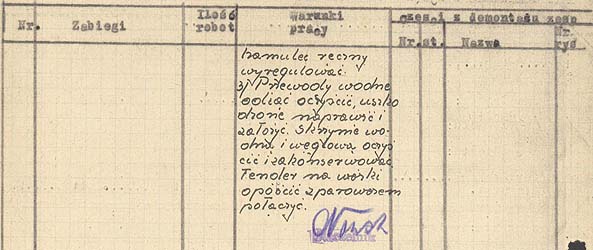 Nr. Zabiegi Ilość robot Warunki pracy Części z demontażu zesp
Nr.st. Nazwa Nr. rys
hamulec ręczny
wyregulować.
3) Przewody wodne
odjąć oczyścić, uszko
dzone naprawić i
założyć. Skrzynię wo-
dną i węglową oczyś
cić i zakonserwować
Tender na wózki
opóścić z parowozem
połączyć.